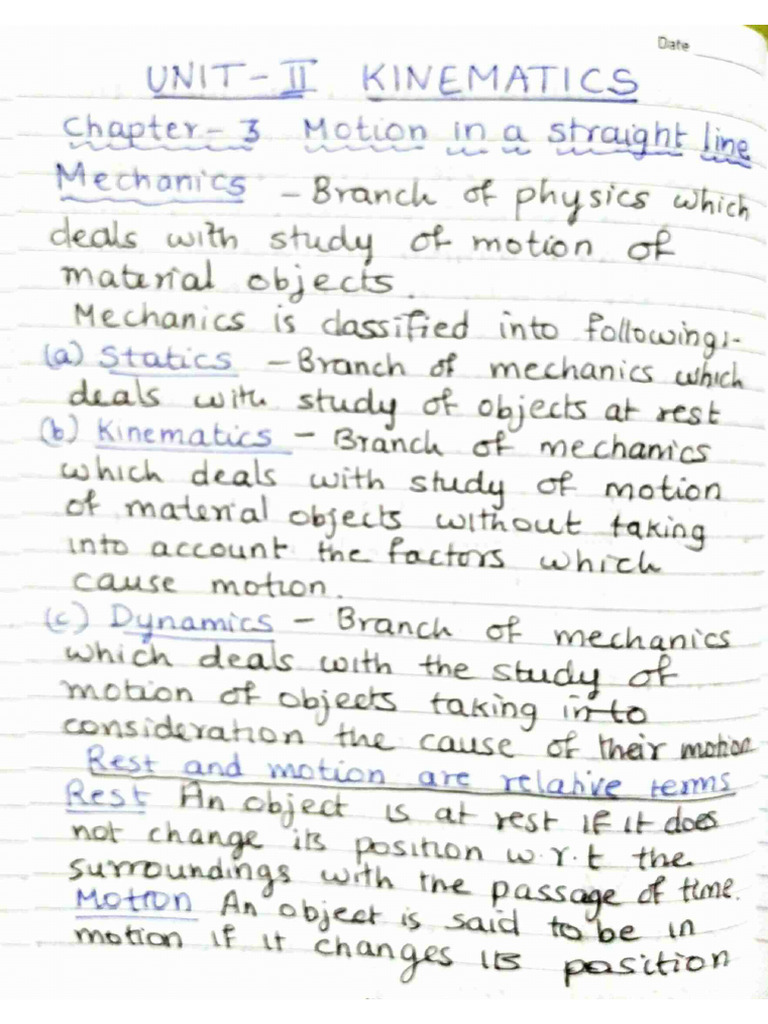 Date
UNIT-II KINEMATICS
Chapter-3 Motion in a straight line
Mechanics - Branch of physics which
deals with study of motion of
material objects.
Mechanics is classified into following:-
(a) Statics - Branch of mechanics which
deals with study of objects at rest
(b) Kinematics - Branch of mechanics
which deals with study of motion
of material objects without taking
into account the factors which
cause motion.
(c) Dynamics - Branch of mechanics
which deals with the study of
motion of objects taking in to
consideration the cause of their motion
Rest and motion are relative terms
Rest An object is at rest if it does
not change its position w.r.t the
surroundings with the passage of time.
Motion An object is said to be in
motion if it changes its position